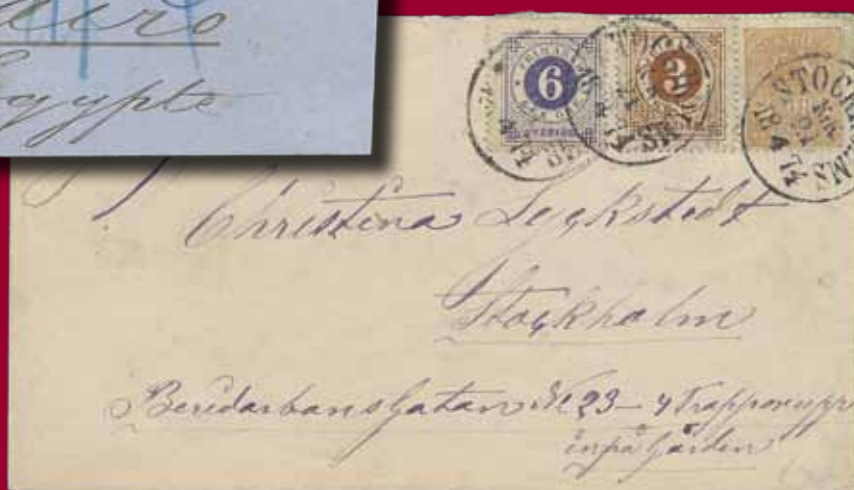 Cairo
Egypte
6
SVERIGE
3
STOCKHOLM
18 4 74
Christina Lyckstedt
Stockholm
Beridarbansgatan N 23 – 4 Trappor upp
inpå Gården